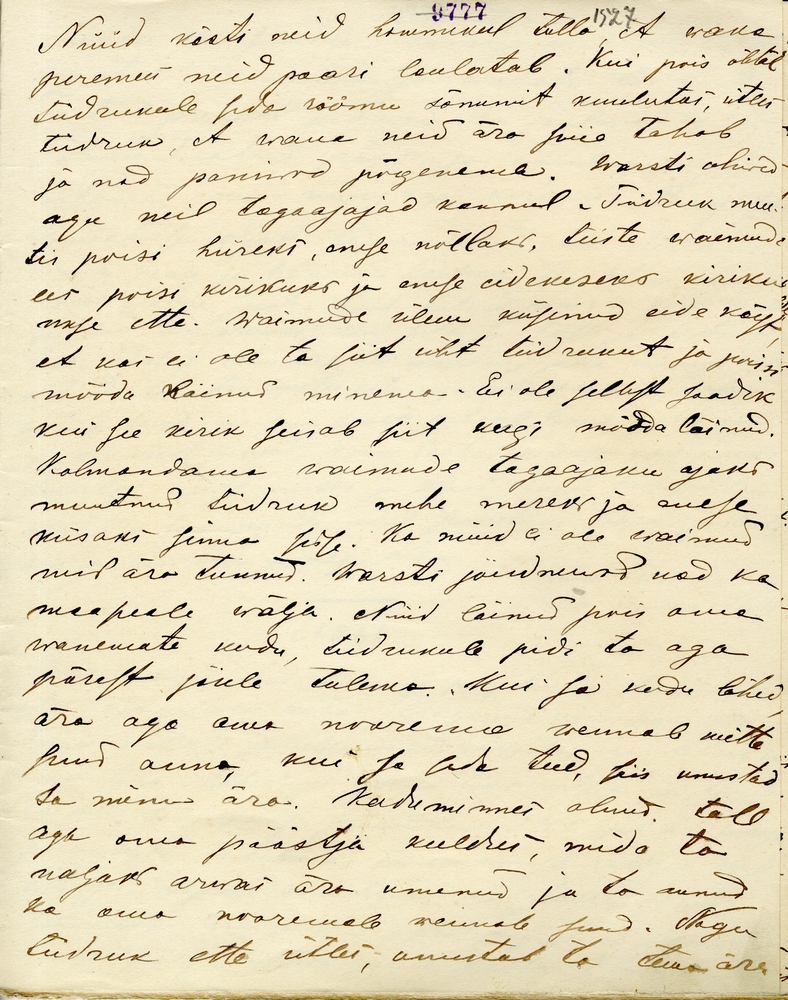 9777 1527
Nüüd kästi neid hommikul tulla, et wana
peremees neid paari laulatab. Kui pois õhtul
tüdrukule seda rõõmu sõnumit kuulutas, ütles
tüdruk, et wana neid ära süüa tahab
ja nad paniwad põgenema. Warsti oliwad
aga neil tagaajajad kannul. Tüdruk muu-
tis poisi hiireks, enese nõllaks, teiste waimude
ees poisi kirikuks ja enese eidekeseks kiriku
ukse ette. Waimude ülem küsinud eide käest,
et kas ei ole ta siit üht tüdrukut ja poissi
mööda läinud minema. Ei ole sellest saadik
kui see kirik seisab siit keegi mööda läinud.
Kolmandama waimude tagaajaku ajaks
muutnud tüdruk mehe mereks ja enese
kiisaks sinna sisse. Ka nüüd ei ole waimud
neid ära tunnud. Warsti jõudnuwad nad ka
maapeale wälja. Nüüd läinud pois oma
wanemate kodu, tüdrukule pidi ta aga
pärast jäele tulema. Kui sa kodu lähed,
ära aga oma noorema wennale mitte
suud anna, kui sa seda teed, siis unustad
sa minu ära. Kodu minnes olnud tall
aga oma päästja keeldus, mida ta
naljaks arwas ära unenud ja ta annud
ka oma nooremale wennale suud. Nagu
tüdruk ette ütles, unustab ta tema ära